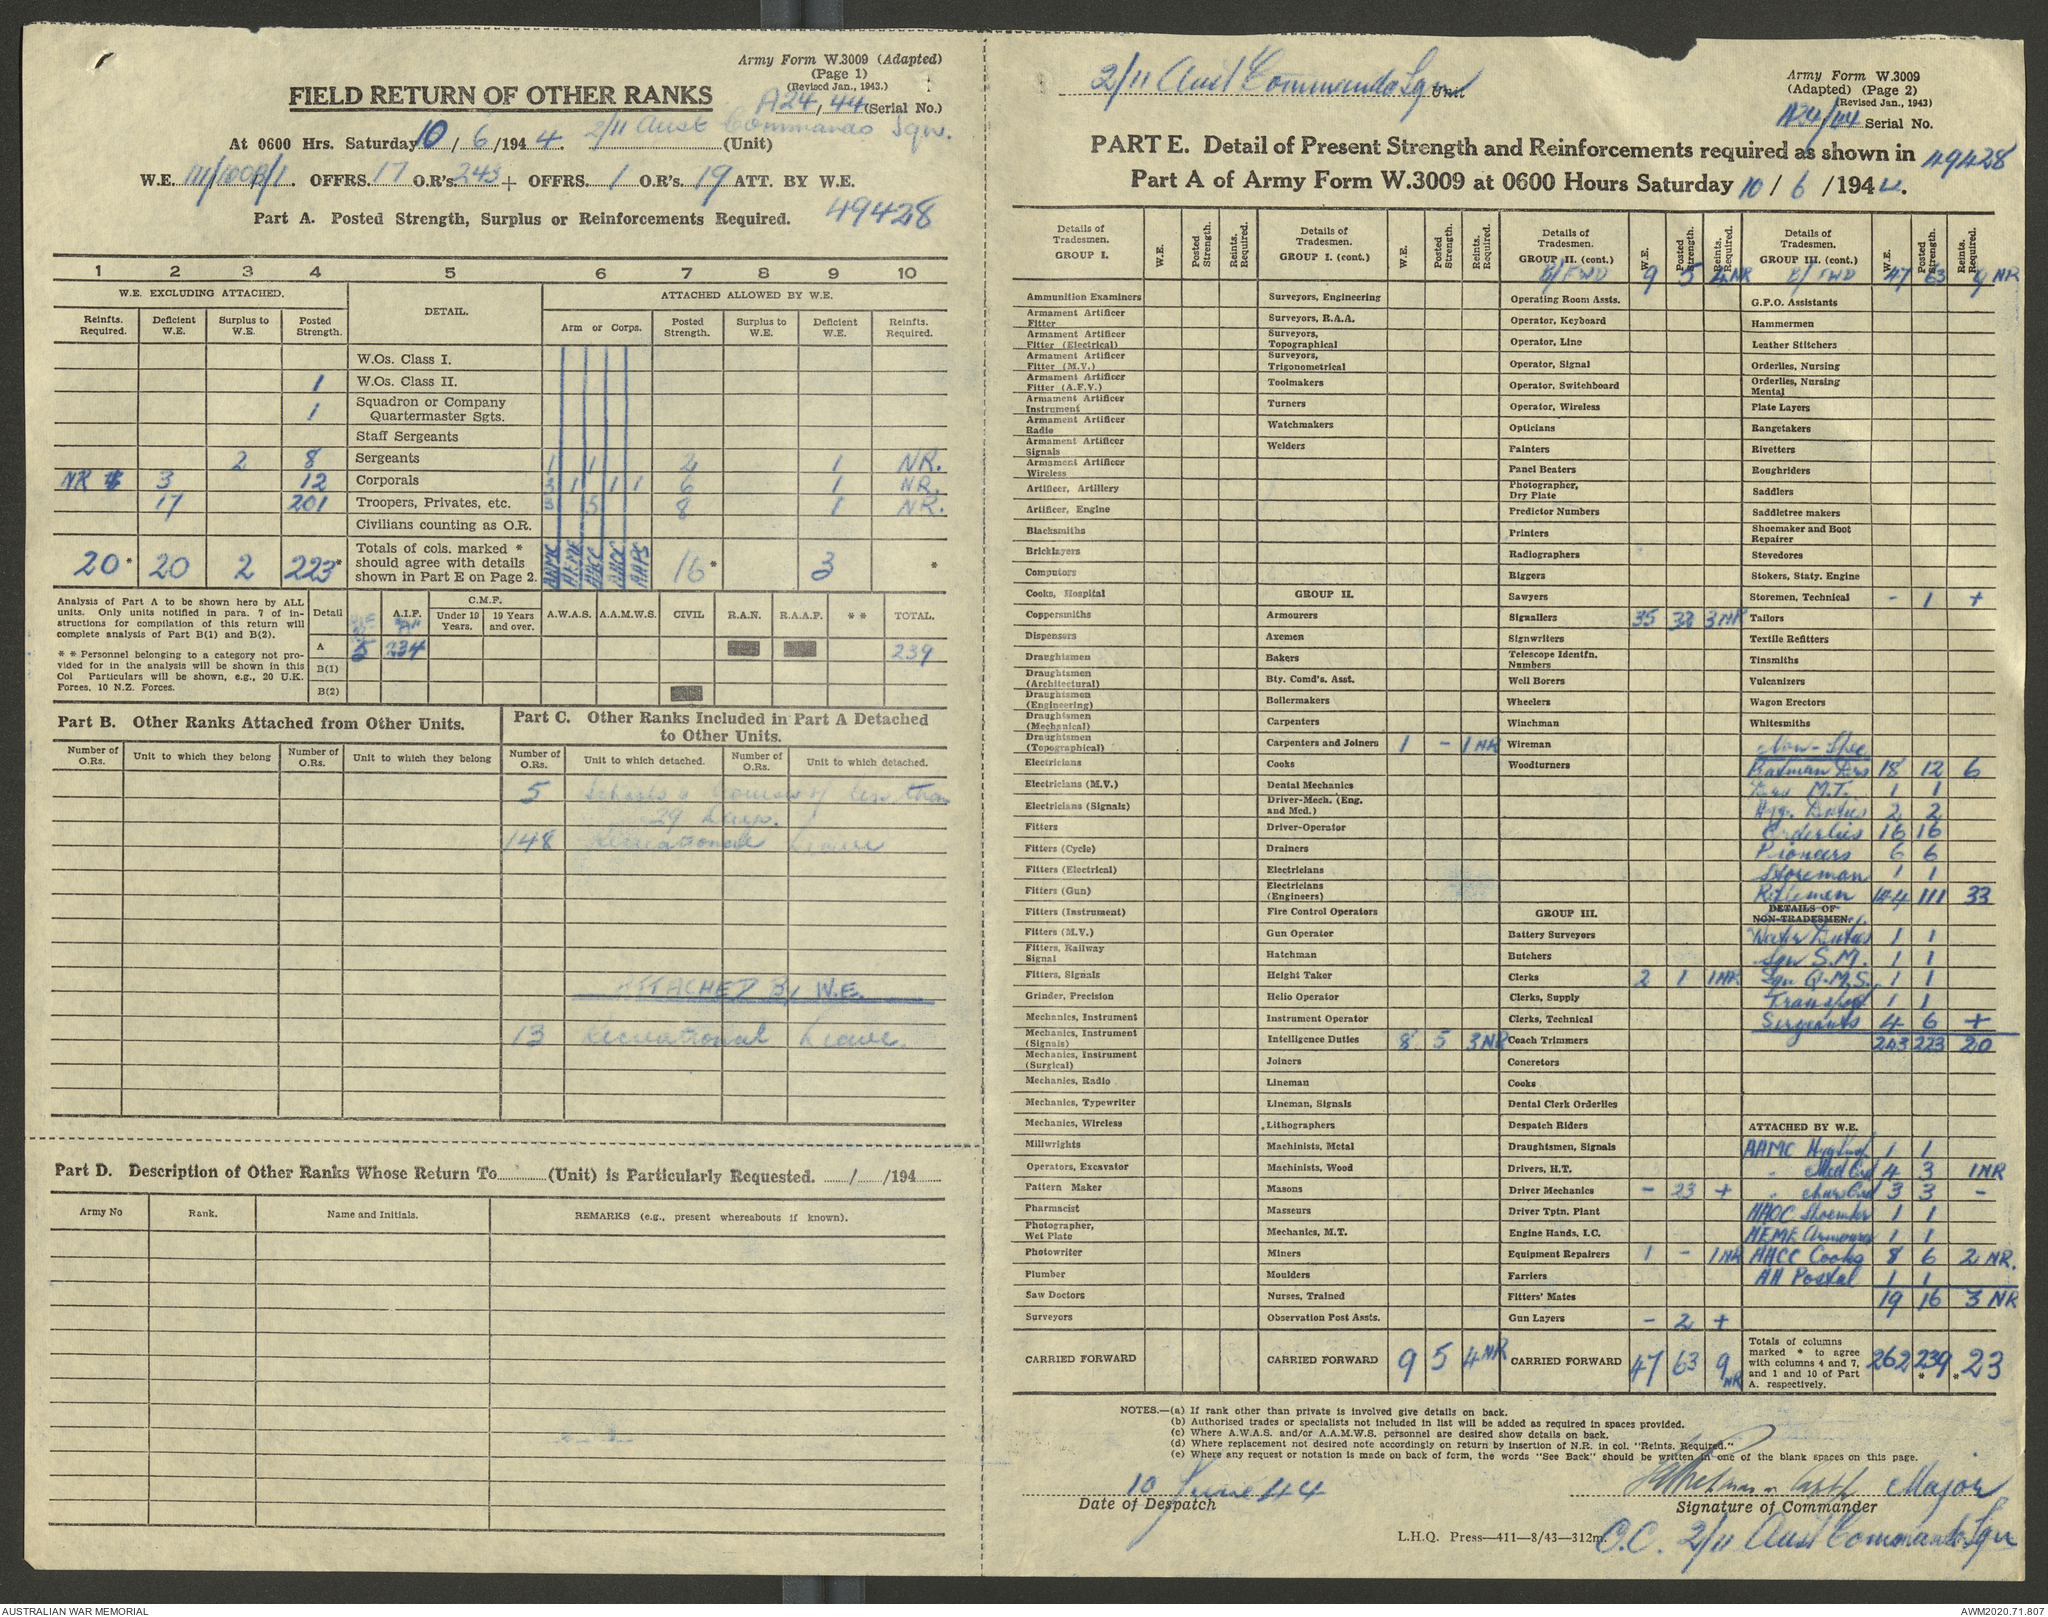 Army Form W.3009 (Adapted)
(Page 1)
(Revised Jan., 1943.)
FIELD RETURN OF OTHER RANKS
A24/44 (Serial No.)
At 0600 Hrs. Saturday 10/6/1944. 2/11 Aust Commando Sqn. (Unit)
W.E. OFFRS. 17 O.R's. 243 + OFFRS. 1 O.R's. 19 ATT. BY W.E.
Part A. Posted Strength, Surplus or Reinforcements Required. 49428
1 2 3 4 5 6 7 8 9 10
W.E. EXCLUDING ATTACHED. DETAIL. ATTACHED ALLOWED BY W.E.
Reinfts. Required. Deficient W.E. Surplus to W.E. Posted Strength. Arm or Corps. Posted Strength. Surplus to W.E. Deficient W.E. Reinfts. Required.
W.Os. Class I.
1 W.Os. Class II.
1 Squadron or Company Quartermaster Sgts.
Staff Sergeants
2 8 Sergeants 1 1 2 1 NR.
NR 3 12 Corporals 3 1 1 1 6 1 NR.
17 201 Troopers, Privates, etc. 3 5 8 1 NR.
Civilians counting as O.R.
20* 20 2 223* Totals of cols. marked * should agree with details shown in Part E on Page 2. AAMC AEME AACC AAOC AAPS 16* 3 *
Analysis of Part A to be shown here by ALL units. Only units notified in para. 7 of instructions for compilation of this return will complete analysis of Part B(1) and B(2).
* * Personnel belonging to a category not provided for in the analysis will be shown in this Col Particulars will be shown, e.g., 20 U.K. Forces, 10 N.Z. Forces.
Detail A.I.F. C.M.F. Under 19 Years. 19 Years and over. A.W.A.S. A.A.M.W.S. CIVIL R.A.N. R.A.A.F. * * TOTAL.
A 5 234 239
B(1)
B(2)
Part B. Other Ranks Attached from Other Units.
Number of O.Rs. Unit to which they belong Number of O.Rs. Unit to which they belong
Part C. Other Ranks Included in Part A Detached to Other Units.
Number of O.Rs. Unit to which detached. Number of O.Rs. Unit to which detached.
5 Schools & Courses of less than
29 days.
148 Recreational Leave
ATTACHED By W.E.
13 Recreational Leave.
Part D. Description of Other Ranks Whose Return To (Unit) is Particularly Requested. / /194
Army No Rank. Name and Initials. REMARKS (e.g., present whereabouts if known).
2/11 Aust Commando Sqn Unit
Army Form W.3009
(Adapted) (Page 2)
(Revised Jan., 1943)
A24/44 Serial No.
PART E. Detail of Present Strength and Reinforcements required as shown in 49428
Part A of Army Form W.3009 at 0600 Hours Saturday 10/6/1944.
Details of Tradesmen. GROUP I. W.E. Posted Strength. Reints. Required.
Ammunition Examiners
Armament Artificer Fitter
Armament Artificer Fitter (Electrical)
Armament Artificer Fitter (M.V.)
Armament Artificer Fitter (A.F.V.)
Armament Artificer Instrument
Armament Artificer Radio
Armament Artificer Signals
Armament Artificer Wireless
Artificer, Artillery
Artificer, Engine
Blacksmiths
Bricklayers
Computors
Cooks, Hospital
Coppersmiths
Dispensers
Draughtsmen
Draughtsmen (Architectural)
Draughtsmen (Engineering)
Draughtsmen (Mechanical)
Draughtsmen (Topographical)
Electricians
Electricians (M.V.)
Electricians (Signals)
Fitters
Fitters (Cycle)
Fitters (Electrical)
Fitters (Gun)
Fitters (Instrument)
Fitters (M.V.)
Fitters, Railway Signal
Fitters, Signals
Grinder, Precision
Mechanics, Instrument
Mechanics, Instrument (Signals)
Mechanics, Instrument (Surgical)
Mechanics, Radio
Mechanics, Typewriter
Mechanics, Wireless
Millwrights
Operators, Excavator
Pattern Maker
Pharmacist
Photographer, Wet Plate
Photowriter
Plumber
Saw Doctors
Surveyors
CARRIED FORWARD
Details of Tradesmen. GROUP I. (cont.) W.E. Posted Strength. Reints. Required.
Surveyors, Engineering
Surveyors, R.A.A.
Surveyors, Topographical
Surveyors, Trigonometrical
Toolmakers
Turners
Watchmakers
Welders
GROUP II.
Armourers
Axemen
Bakers
Bty. Comd's. Asst.
Boilermakers
Carpenters
Carpenters and Joiners 1 - 1 NR
Cooks
Dental Mechanics
Driver-Mech. (Eng. and Med.)
Driver-Operator
Drainers
Electricians
Electricians (Engineers)
Fire Control Operators
Gun Operator
Hatchman
Height Taker
Helio Operator
Instrument Operator
Intelligence Duties 8 5 3 NR
Joiners
Lineman
Lineman, Signals
Lithographers
Machinists, Metal
Machinists, Wood
Masons
Masseurs
Mechanics, M.T.
Miners
Moulders
Nurses, Trained
Observation Post Assts.
CARRIED FORWARD 9 5 4 NR
Details of Tradesmen. GROUP II. (cont.) W.E. Posted Strength. Reints. Required.
B/FWD 9 5 4 NR
Operating Room Assts.
Operator, Keyboard
Operator, Line
Operator, Signal
Operator, Switchboard
Operator, Wireless
Opticians
Painters
Panel Beaters
Photographer, Dry Plate
Predictor Numbers
Printers
Radiographers
Riggers
Sawyers
Signallers 35 32 3 NR
Signwriters
Telescope Identfn. Numbers
Well Borers
Wheelers
Winchman
Wireman
Woodturners
GROUP III.
Battery Surveyors
Butchers
Clerks 2 1 1 NR
Clerks, Supply
Clerks, Technical
Coach Trimmers
Concretors
Cooks
Dental Clerk Orderlies
Despatch Riders
Draughtsmen, Signals
Drivers, H.T.
Driver Mechanics - 23 +
Driver Tptn. Plant
Engine Hands, I.C.
Equipment Repairers 1 - 1 NR
Farriers
Fitters' Mates
Gun Layers - 2 +
CARRIED FORWARD 47 63 9 NR
Details of Tradesmen. GROUP III. (cont.) W.E. Posted Strength. Reints. Required.
B/FWD 47 63 9 NR
G.P.O. Assistants
Hammermen
Leather Stitchers
Orderlies, Nursing
Orderlies, Nursing Mental
Plate Layers
Rangetakers
Rivetters
Roughriders
Saddlers
Saddletree makers
Shoemaker and Boot Repairer
Stevedores
Stokers, Staty. Engine
Storemen, Technical - 1 +
Tailors
Textile Refitters
Tinsmiths
Vulcanizers
Wagon Erectors
Whitesmiths
Non-Spec
Batman Dvrs 18 12 6
Dvrs M.T. 1 1
Hyg. Duties 2 2
Orderlies 16 16
Pioneers 6 6
Storeman 1 1
Riflemen 144 111 33
DETAILS OF NON-TRADESMEN.
Water Duties 1 1
Sqn S.M. 1 1
Sqn Q.M.S. 1 1
Transport 1 1
Sergeants 4 6 +
243 223 20
ATTACHED BY W.E.
AAMC 1 1
" Med Ord 4 3 1 NR
" Nurs Ord 3 3 -
AAOC Shoemkr 1 1
AEME Armourer 1 1
AACC Cooks 8 6 2 NR.
AA Postal 1 1
19 16 3 NR
Totals of columns marked * to agree with columns 4 and 7, and 1 and 10 of Part A. respectively. 262 239* *23
NOTES.—(a) If rank other than private is involved give details on back.
(b) Authorised trades or specialists not included in list will be added as required in spaces provided.
(c) Where A.W.A.S. and/or A.A.M.W.S. personnel are desired show details on back.
(d) Where replacement not desired note accordingly on return by insertion of N.R. in col. "Reints. Required."
(e) Where any request or notation is made on back of form, the words "See Back" should be written in one of the blank spaces on this page.
10 June 44
Date of Despatch
Major
Signature of Commander
L.H.Q. Press—411—8/43—312m.
O.C. 2/11 Aust Commando Sqn
AUSTRALIAN WAR MEMORIAL
AWM2020.71.807